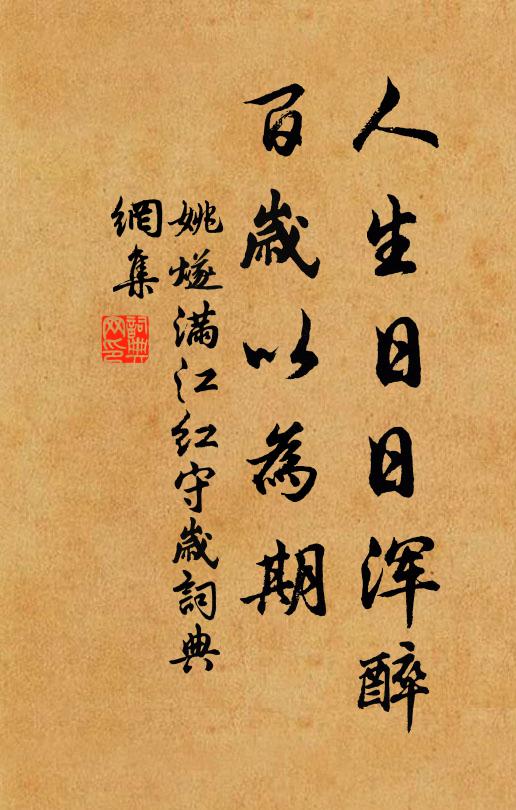 人生日日浑醉
百歲以為期
姚燧满江红守歲詞典
網集
詞典
网印